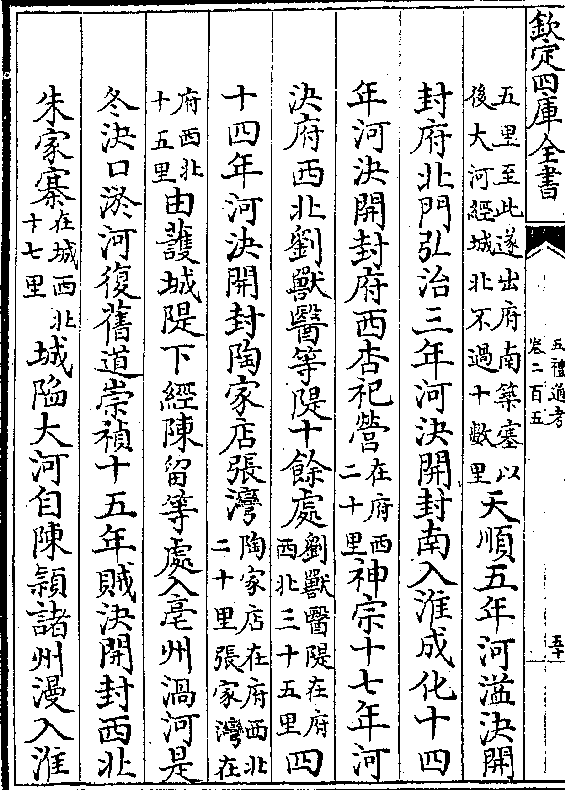 欽定四庫全書
五禮通考
卷二百五
五十
五里至此遂出府南築塞以後大河經城北不過十數里天順五年河溢決開
封府北門弘治三年河決開封南入淮成化十四
年河決開封府西杏祀營在府西二十里神宗十七年河
決府西北劉獸醫等隄十餘處劉獸醫隄在府西北三十五里四
十四年河決開封陶家店張灣陶家店在府西北二十里張家灣在
府西北十五里由護城隄下經陳留等處入亳州渦河是
冬決口淤河復舊道崇禎十五年賊決開封西北
朱家寨在城西北十七里城陷大河自陳穎諸州漫入淮